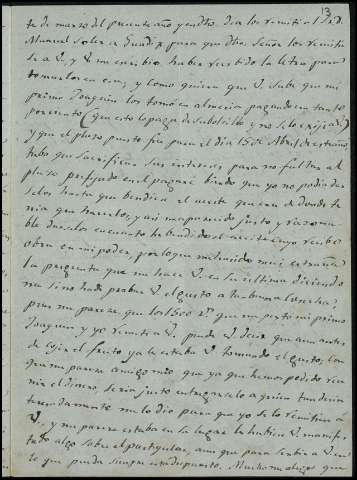 13
te de marzo del presente año y en dho. dia los remití al Sr. D.
Manuel Soler a Guadix para que dho. Señor los remitie
se a V. y V. me escribió haber recibido la letra para
tomarlos en esa; y como quiera que V. sabe que mi
primo Joaquin los tomó en Almeria pagando un tanto
por ciento (que esto lo paga de su bolsillo y no se lo exijo a V.)
y que el plazo puesto fue para el dia 15 de Abril de este año,
tubo que sacrificar sus intereses para no faltar al
plazo prefijado en el pagaré biendo que yo no podia dar
selos hasta que bendiera el aceite que era de donde te
nia que hacerlos, y asi me parecido justo y razona
ble darselos en cuanto he bendido el aceite cuyo recibo
obra en mi poder, por lo que me ha sido muy estraña
la pregunta que me hace V. en su última diciendo
me si no hade probar V. el gusto a
pues me parece que los 1500 r.s que me prestó mi primo
Joaquin y yo remití a V. puede V. decir que aun antes
de cojer el fruto ya le estaba V. tomando el gusto, con
que me parece amigo mio que ya que hemos podido reu
nir el dinero seria justo entregarselo a quien tan
me lo dio para que yo se lo remitiera á
V., y me parece estaba en su lugar le hubiera V. manifes
tado algo sobre el particular, aun que para servir a V. en
lo que pueda siempre está dispuesto. Mucho me alegro que